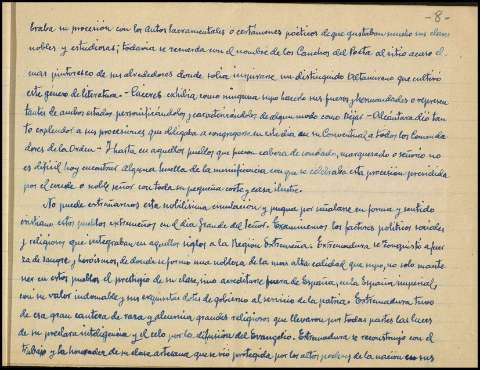 -8-
braba su procesión con los autos sacramentales o certámenes poéticos de que gustaban mucho sus clases
nobles y estudiosas; todavía se recuerda con el nombre de los Canchos del Poeta al sitio acaso el
mas pintoresco de sus alrededores donde solía inspirarse un distinguido que cultivó
este genero de literatura. - Cáceres exhibía, como ninguna supo hacerlo sus fueros y hermandades o represen
tantes de ambos estados personificándolos y caracterizándolos de algun modo como Béjar - Alcántara dió tan
to esplendor a sus procesiones que obligaba a congregarse en este día en su Conventual a todos los Comenda
dores de la Orden - Y hasta en aquellos pueblos que fueron cabeza de condado, marquesado o señorío no
es difícil hoy encontrar alguna huella de la munificencia con que se celebraba esta procesión presidida
por el conde o noble señor con toda su pequeña corte y casa ilustre.
No puede extrañarnos esta nobilísima emulación y pugna por señalarse en forma y sentido
cristiano estos pueblos extremeños en el día Grande del Señor. Examinemos los factores politicos sociales
y religiosos que integraban en aquellos siglos a la Región Extremeña: Extremadura se reconquistó a fuer
za de sangre y heroismos, de donde se formó una nobleza de la mas alta calidad que supo, no solo mante
ner en estos pueblos el prestigio de su clase, sino acreditarse fuera de España, en la España imperial,
con su valor indomable y sus exquisitas dotes de gobierno al servicio de la patria. Extremadura tuvo
de esa gran cantera de raza y alcurnia, grandes religiosos que llevaron por todas partes las luces
de su preclara inteligencia y el celo por la difusión del Evangelio. Extremadura se reconstruyó con el
trabajo y la honradez de su clase artesana que se vió protegida por los altos poderes de la nación en sus